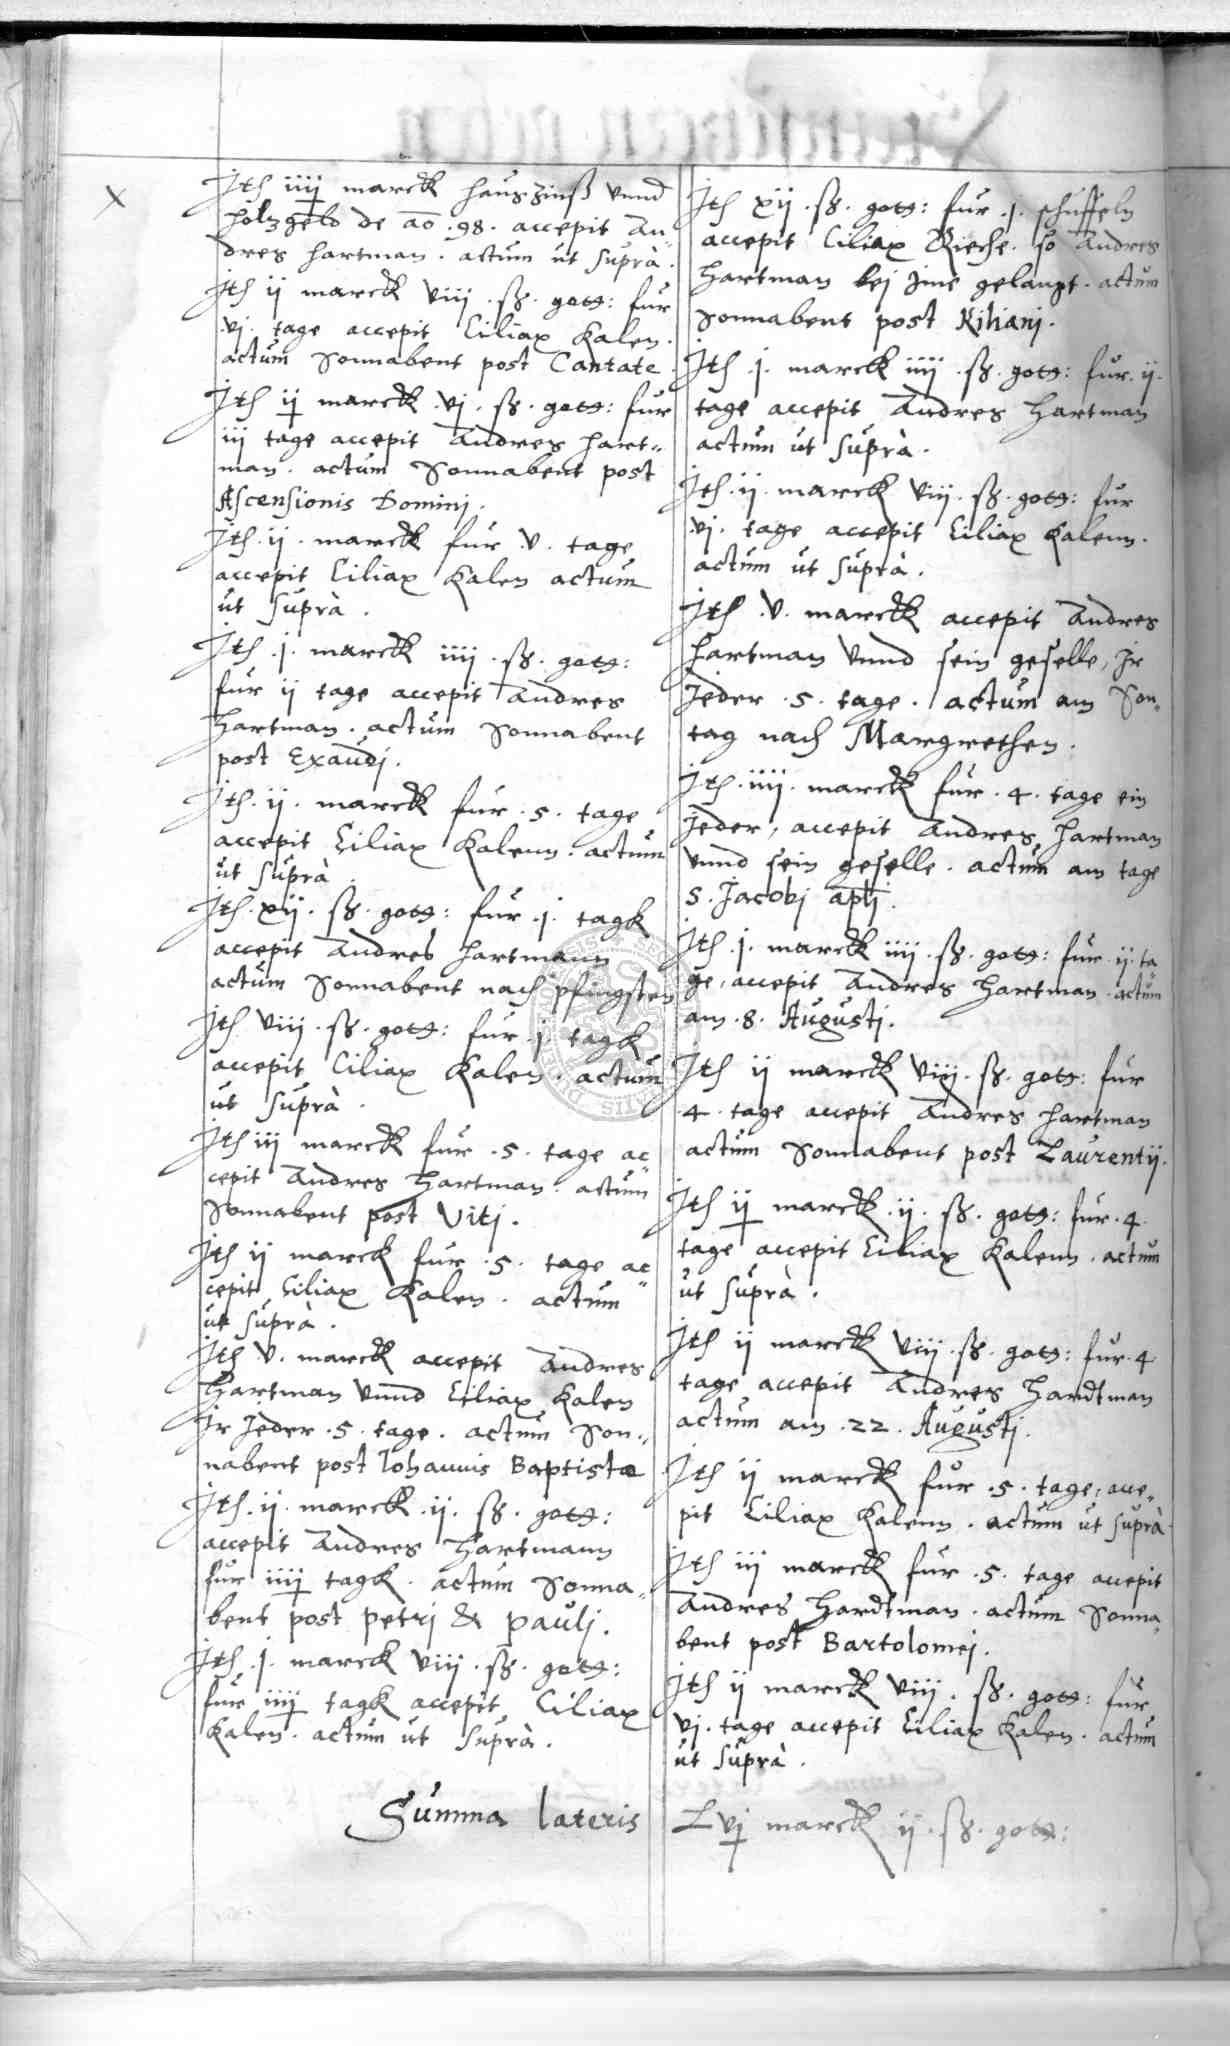 Ith iiij marck hauszinß vnnd
holzgelt de ao .98. accepit An
dres hartman. actum ut suprà.
Ith ij marck viij .sß. gots: fur
.vj. tage accepit Ciliax Kalen.
actum Sonnabent post Cantate.
Ith ij marck .vj. sß. gots: fur
iij tage accepit Andres hart=
man. actum Sonnabent post
Ascensionis Dominj.
Ith .ij. marck fur .v. tage
accepit Ciliax Kalen actum
ut suprà.
Ith .j. marck iiij .sß. gots:
fur ij tage accepit Andres
hartman. actum Sonnabent
post Exaudj.
Ith .ij. marck fur .5. tage
accepit Ciliax Kalenn. actum
ut suprà.
Ith .xij. sß. gots: fur .j. tagk
accepit Andres hartmann
actum Sonnabent nach pfingsten
Ith viij .sß. gots: fur .j. tagk
accepit Ciliax Kalen. actum
ut suprà.
Ith iij marck fur .5. tage ac
cepit Andres Hartman. actum
Sonnabent post Vitj.
Ith ij marck fur .5. tage ac
cepit Ciliax Kalen. actum
ut suprà.
Ith v. marck accepit Andres
Hartman vnnd Ciliax Kalen
Jr Jeder .5. tage. actum Son=
nabent post Iohannis Baptistæ
Ith .ij. marck .ij. sß. gots:
accepit Andres Hartmann
fur iiij tagk. actum Sonna=
bent post petrj & paulj.
Ith .j. marck viij .sß. gots:
fur iiij tagk accepit Ciliax
Kalen. actum ut suprà.
Summa lateris
Ith xij .sß. gots: fur .j. schuffeln
accepit Ciliax so Andres
Hartman bej gelangt. actum
Sonnabent post Kilianj.
Ith .j. marck iiij .sß. gots: fur .ij.
tage accepit Andres Hartman
actum ut suprà.
Ith .ij. marck viij .sß. gots: fur
.vj. tage accepit Ciliax Kalenn.
actum ut suprà.
Ith .v. marck accepit Andres
Hartman vnnd sein geselle, Jr
Jeder .5. tage. actum am Son=
tag nach Margrethen.
Ith .iiij. marck fur .4. tage ein
Jeder, accepit Andres Hartman
vnnd sein geselle. actum am tage
S. Jacobj aplj.
Ith .j. marck iiij .sß. gots: fur .ij. ta
ge, accepit Andres Hartman. actum
am .8. Augustj.
Ith ij marck viij .sß. gots: fur
.4. tage accepit Andres Hartman
actum Sonnabent post Laurentij.
Ith ij marck .ij. sß. gots: fur .4.
tage accepit Ciliax Kalenn. actum
ut suprà.
Ith ij marck viij .sß. gots: fur .4
tage accepit Andres Hardtman
actum am .22. Augustj.
Ith ij marck fur .5. tage, acce=
pit Ciliax Kalenn. actum ut suprà.
Ith iij marck fur .5. tage accepit
Andres Hardtman. actum Sonna=
bent post Bartolomej.
Ith ij marck viij. sß. gots: fur
vj. tage accepit Ciliax Kalen. actum
ut suprà.
Lvj marck ij .sß. gots: